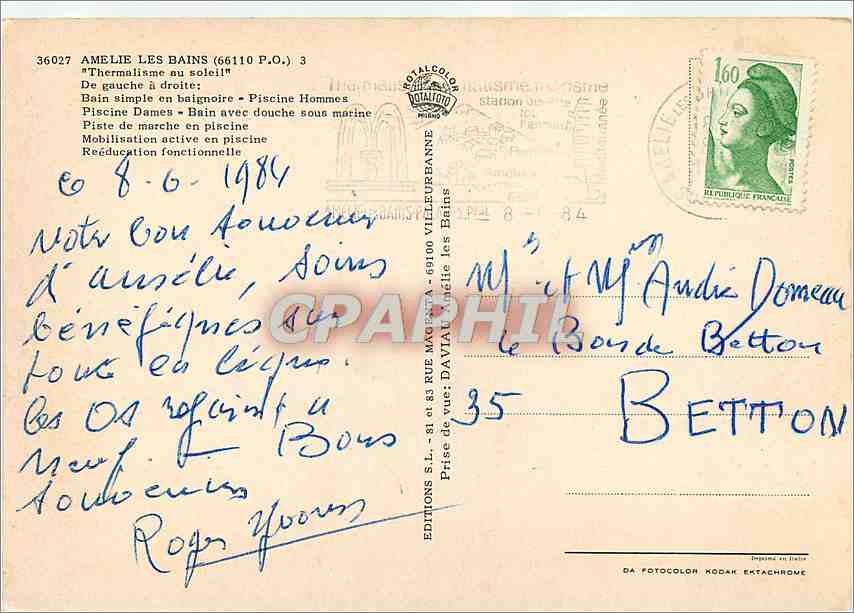 36027 AMELIE LES BAINS (66110 P.O.) 3
"Thermalisme au soleil"
De gauche à droite:
Bain simple en baignoire - Piscine Hommes
Piscine Dames - Bain avec douche sous marine
Piste de marche en piscine
Mobilisation active en piscine
Reéducation fonctionnelle
ROTALCOLOR
ROTALFOTO
MILANO
station
Méditerranée
8 - 84
AMELIE-LES
1,60
POSTES
REPUBLIQUE FRANÇAISE
8-6-1984
bon souvenir
d'amélie, soins
bénéfiques sur
toute la ligne.
les os
neuf. — Bons
souvenirs
Roger Yvonne
EDITIONS S.L. - 81 et 83 RUE MAGENTA - 69100 VILLEURBANNE
Prise de vue: DAVIAU Amélie les Bains
CPAPHIL
Mr et Mme André Domeau
le Bas de Betton
35 BETTON
Imprimé en Italie
DA FOTOCOLOR KODAK EKTACHROME